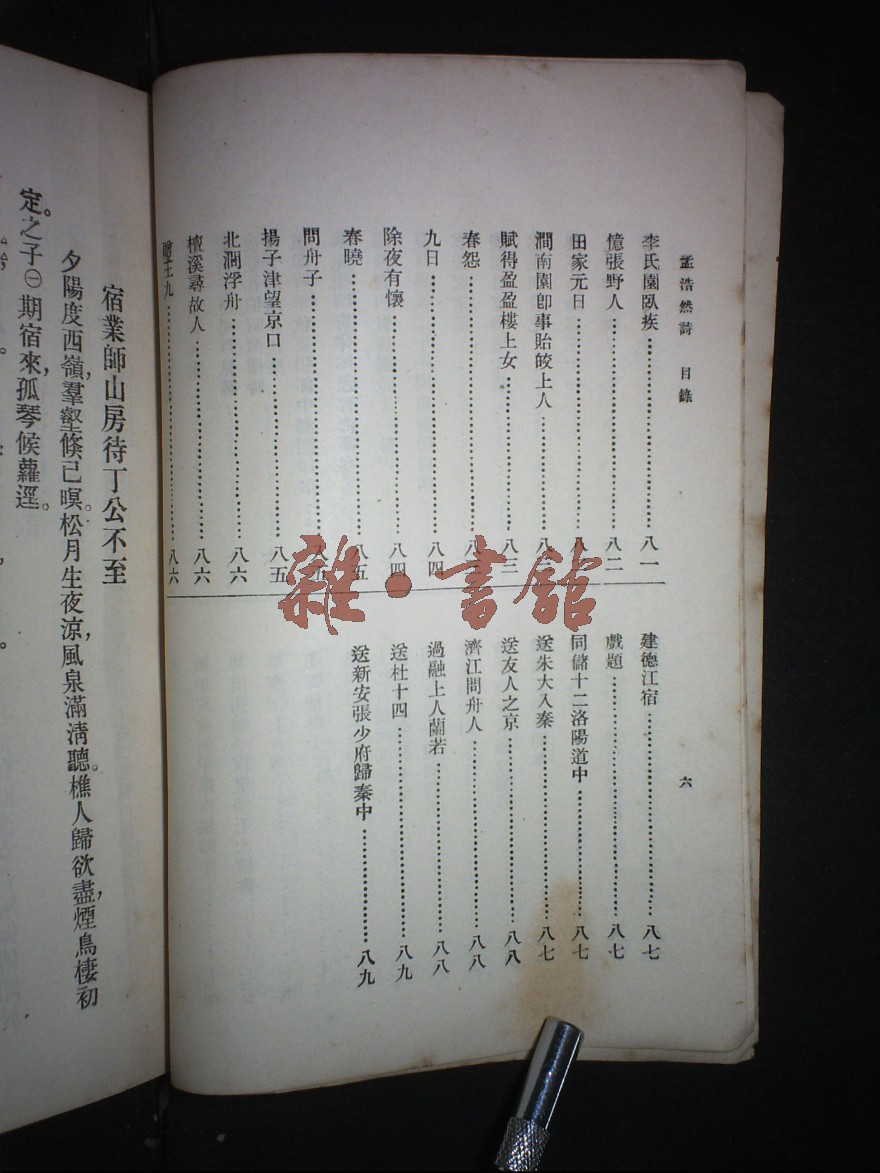 孟浩然詩 目錄
六
李氏園臥疾……八一
憶張野人……八二
田家元日……八
澗南園卽事貽皎上人……八
賦得盈盈樓上女……八三
春怨……八
九日……八四
除夜有懷……八四
春曉……八五
問舟子……八五
揚子津望京口……八五
北澗浮舟……八六
檀溪尋故人……八六
贈王九……八六
建德江宿……八七
戲題……八七
同儲十二洛陽道中……八七
送朱大入秦……八七
送友人之京……八八
濟江問舟人……八八
過融上人蘭若……八八
送杜十四……八九
送新安張少府歸秦中……八九
雜·書館
宿業師山房待丁公不至
夕陽度西嶺，羣壑倏已暝。松月生夜涼，風泉滿淸聽。樵人歸欲盡，煙鳥棲初
定。之子㊀期宿來，孤琴候蘿逕。